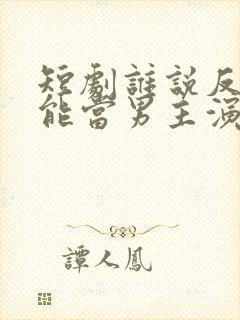 短劇誰說反
能當男主演
譚人鳳